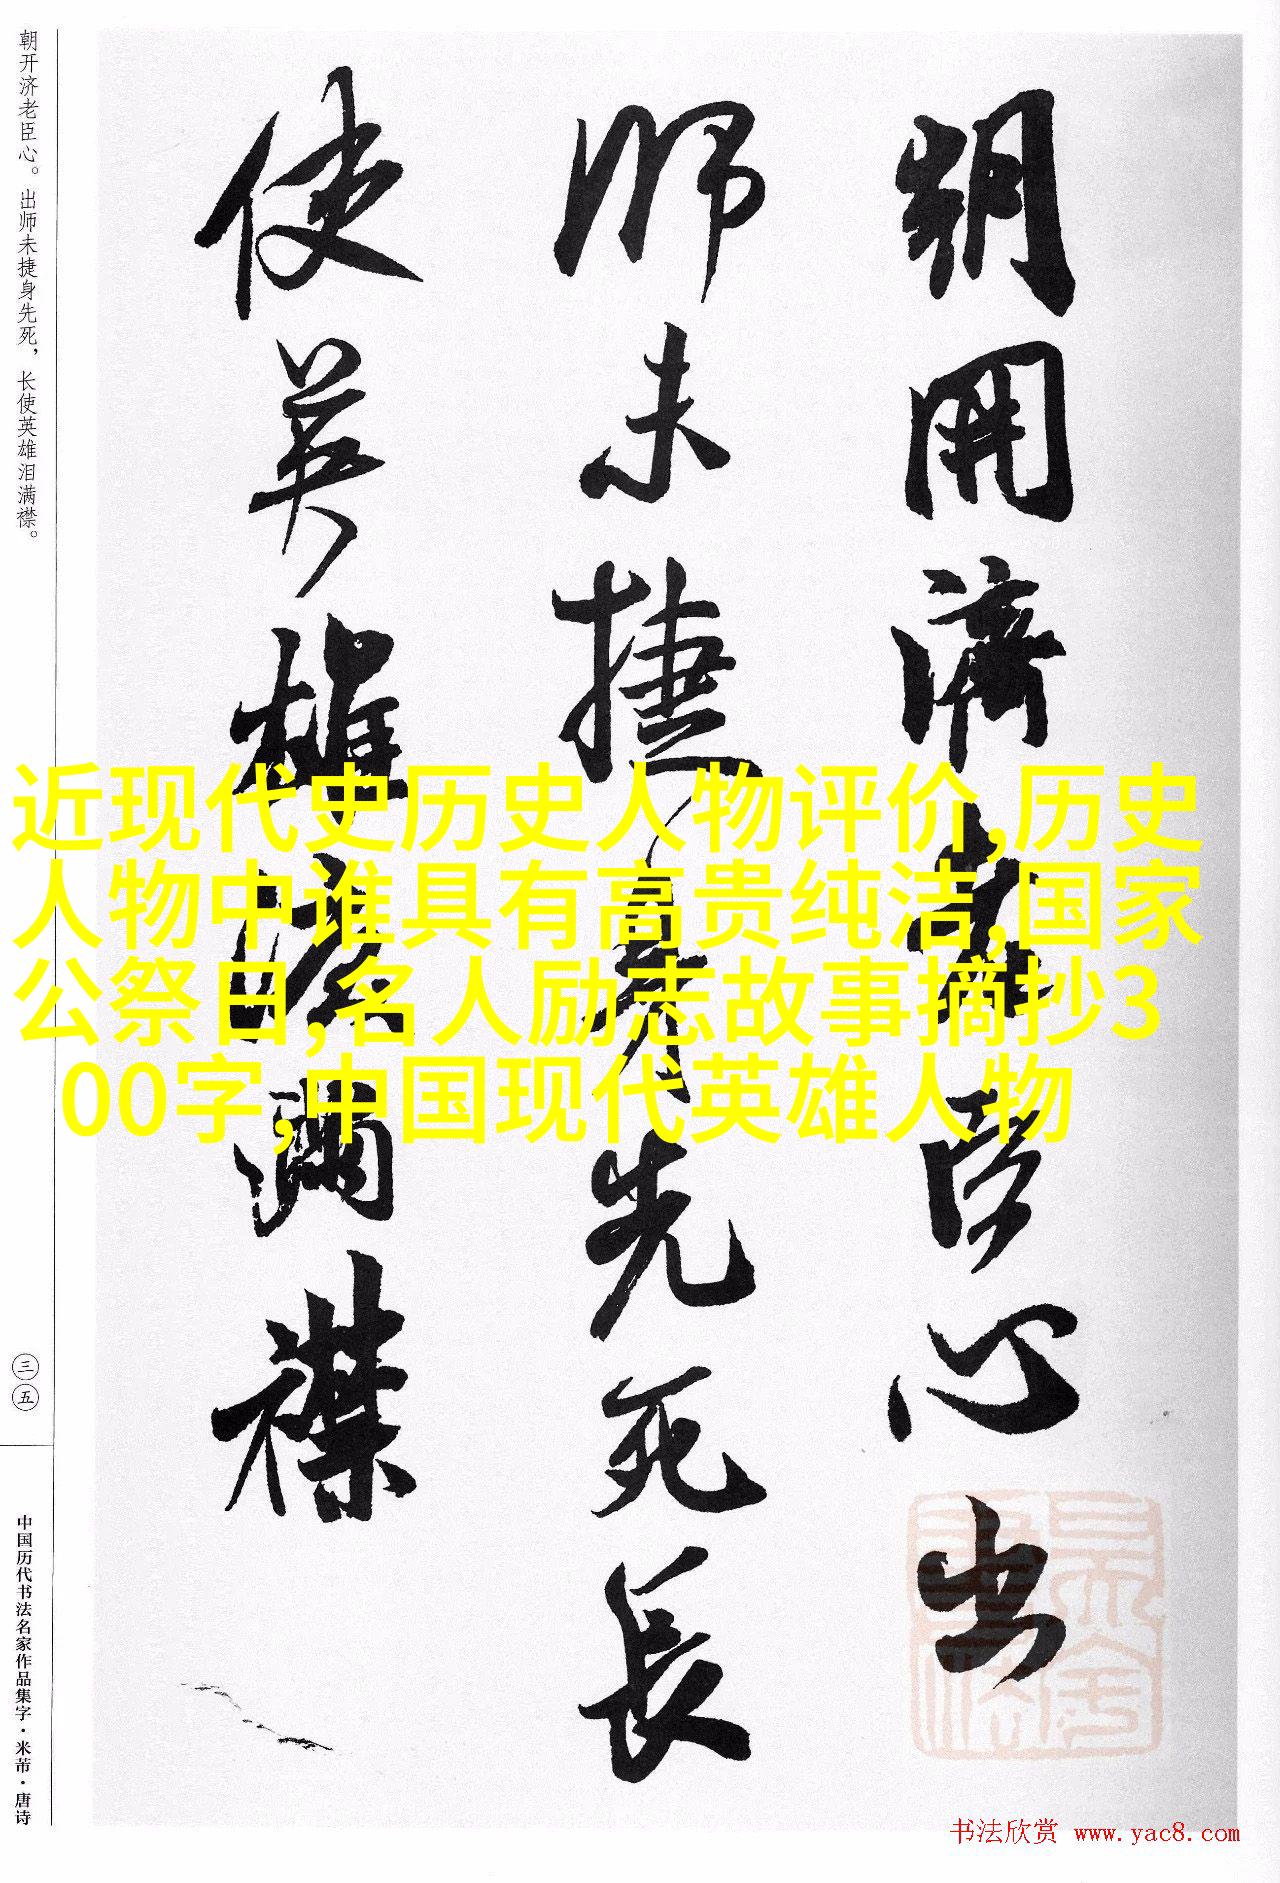 朝開濟老臣心出
師未捷身先死長
使英雄淚滿襟
朝开济老臣心。出师未捷身先死，长使英雄泪满襟。
三五
中国历代书法名家作品集字·米芾·唐诗
近现代史历史人物评价,历史
人物中谁具有高贵纯洁,国家
公祭日,名人励志故事摘抄3
00字,中国现代英雄人物
书法欣赏 www.yac8.com